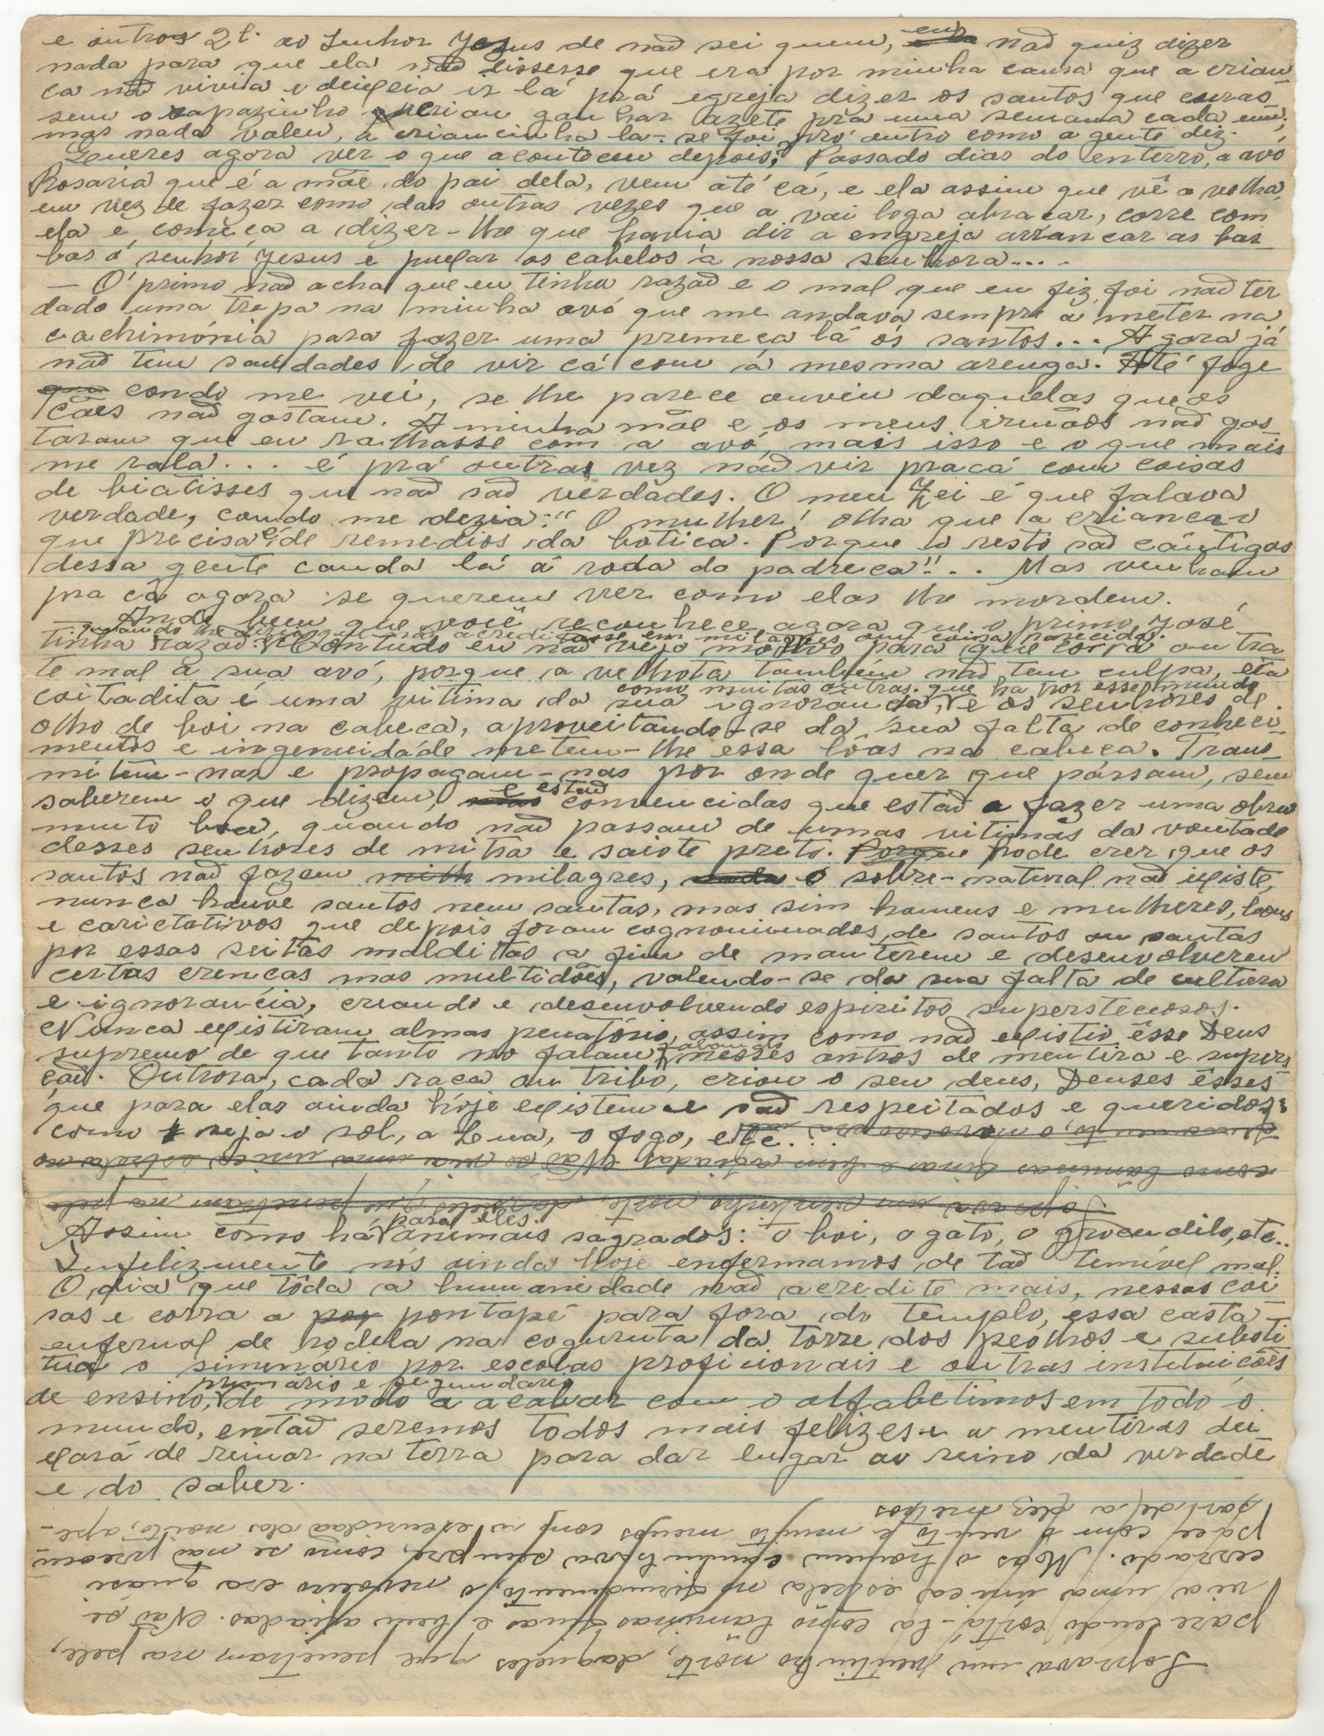 e outros 2l. ao Senhor Jezus de não sei quem, eu não quiz dizer
nada para que ela não dissesse que era por minha causa que a crian-
ca não vivia e deixeia ir lá prá egreja dizer os santos que curas-
sem o rapazinho queriam ganhar azete pra uma semana cada um;
mas nada valeu, a criancinha la-se foi pró outro como a gente diz.
Zeneres agora ver o que aconteceu depois; Passado dias do enterro, a avó
Rosaria que é a mãe do pai dela, vem até cá, e ela assim que vê a velha,
em vez de fazer como das outras vezes que a vai loga abracar, corre com
ela e comeca a dizer-lhe que havia dir a engreja arrancar as bar-
bas ó senhor Jesus e puxar os cabelos á nossa senhora....
— O primo não acha que eu tinha razão e o mal que eu fiz foi não ter
dado uma trepa na minha avó que me andava sempre a meter na
cachimónia para fazer uma premeça lá ós santos... Agora já
não tem saudades de vir cá com a mesma arenga. Até foge
condo me vei, se lhe parece ouviu daquelas que os
cães não gostam. A minha mãe e os meus irmãos não gos-
taram que eu ralhasse com a avó, mais isso e o que mais
me rala... é prá outra vez não vir pracá com coisas
de biatisses que não são verdades. O meu Zei é que falava
verdade, condo me dezia:" O mulher! olha que a crianca o
que precisa é de remedios da botica. Porque o resto são cântigas
dessa gente canda lá á roda do padreca"!.. Mas venham
pra cá agora se querem ver como elas lhe mordem.
— Ande bem que você reconhece agora que o primo José
quando lhe dizia que não acreditasse em milagres ou coisa parecida.
tinha razão. Contudo eu não vejo motivo para que corra outra
te mal a sua avó, porque a velhota também não tem culpa, ela
como muitas outras que ha por esse mundo
coitadita é uma vitima da sua ignorancia, e os senhores de
olho de boi na cabeca, aproveitando-se da sua falta de conheci-
mentos e ingenuidade metem-lhe essa lôas na cabeca. Trans-
mitem-nas e propagam-nas por onde quer que pássam, sem
saberem o que dizem, e estão convencidas que estão a fazer uma obra
muito boa, quando não passam de umas vitimas da vontade
desses senhores de mitra e saiote preto. Porque Pode crer que os
santos não fazem milagres, o sobre-natural não existe,
nunca houve santos nem santas, mas sim homens e mulheres, bons
e carictativos que depois foram cognominados de santos ou santas
por essas seitas malditas a fim de manterem e desenvolverem
certas crencas nas multidões, valendo-se da sua falta de cultura
e ignorancia, creando e desenvolvendo espiritos superstecíosos.
Nunca existiram almas penatório, assim como não existio êsse Deus
supremo de que tanto no falam nesses antros de mentira e supers-
cão. Outrora, cada raca ou tribo, criou o seu deus, Deuses êsses
que para elas ainda hoje existem e são respeitados e queridos;
como seja o sol, a Lua, o fogo, etc...
para eles
Assim como há animais sagrados: o boi, o gato, o grocudilo, etc..
Infelizmente nós ainda hoje enfermamos de tão temível mal.
O dia que tôda a humanidade não acredite mais, nessas coi-
sas e corra a pontapé para fora do templo, essa casta
enfernal de rodela na coguruta da torre dos peolhos e substi-
tua o siminário por escolas proficionais e outras instituicões
primário e segundario
de ensino, de modo a acabar com o alfabetimos em todo o
mundo, então seremos todos mais felizes e a mentiras dei-
xará de reinar na terra para dar lugar ao reino da verdade
e do saber.
Soprava um ventinho nórte, daqueles que penetram na pele,
parecendo cortá-la como laminas finas e bem afiadas. Não se
via uma unica estrela no firmamento, o nevoeiro era quasi
cerrado. Mas o homem caminhava sempre, como se não preocu-
pace com o vento e muito menos com a escuridão da noite, ape-